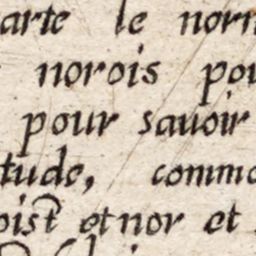 arte le norn
norois pou
pour sauoir
tude, comme
oist et nor et